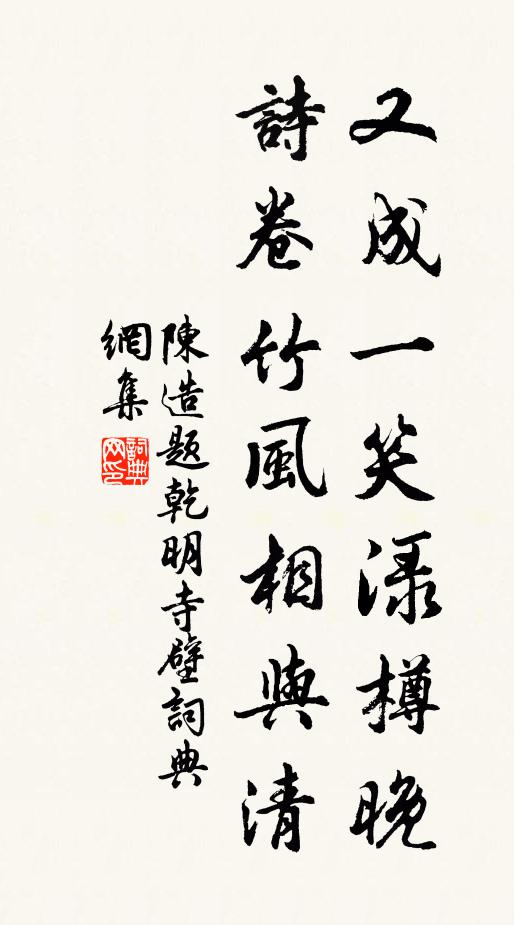 又成一笑渌樽晚
詩卷竹風相與清
陳造題乾明寺壁詞典
網集
詞典
网印